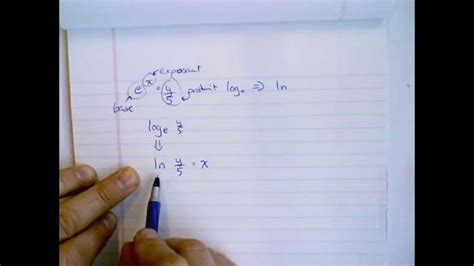 exponent
e^x = 4/5 product log_e ⇒ ln
base
log_e 4/5
⇓
ln 4/5 = x